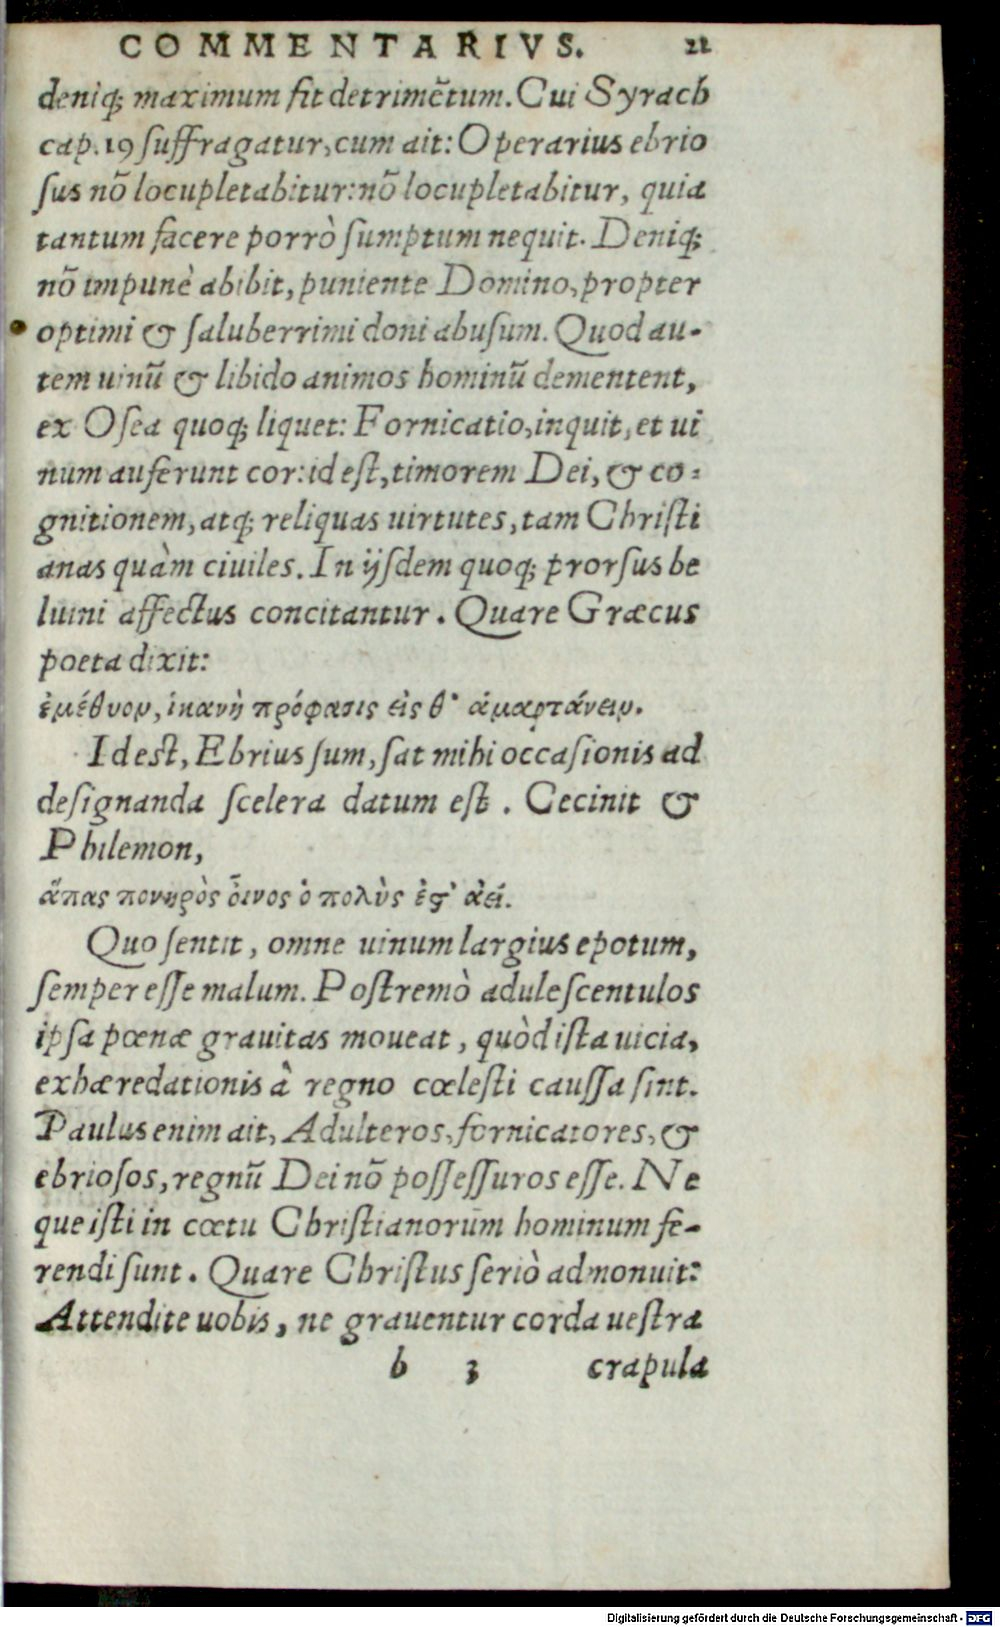 COMMENTARIVS. 21
deniq; maximum fit detrimẽtum. Cui Syrach
cap. 19 ſuffragatur, cum ait: Operarius ebrio
ſus nõ locupletabitur: nõ locupletabitur, quia
tantum facere porrò ſumptum nequit. Deniq;
nõ impunè abibit, puniente Domino, propter
optimi & ſaluberrimi doni abuſum. Quod au-
tem uinũ & libido animos hominũ dementent,
ex Oſea quoq; liquet: Fornicatio, inquit, et ui
num auferunt cor: id eſt, timorem Dei, & co-
gnitionem, atq; reliquas uirtutes, tam Chriſti
anas quàm ciuiles. In ijſdem quoq; prorſus be
luini affectus concitantur. Quare Græcus
poeta dixit:
ἐμέθυον, ἱκανὴ πρόφασις εἰς θ' ἁμαρτάνειν.
Id est, Ebrius ſum, ſat mihi occaſionis ad
deſignanda ſcelera datum eſt. Cecinit &
Philemon,
ἅπας πονηρὸς ὁ͂ινος ὁ πολὺς ἐϛ' ἀεί.
Quo ſentit, omne uinum largius epotum,
ſemper eſſe malum. Poſtremò aduleſcentulos
ipſa pœnæ grauitas moueat, quòd iſta uicia,
exhæredationis à regno cœleſti cauſſa ſint.
Paulus enim ait, Adulteros, fornicatores, &
ebrioſos, regnũ Dei nõ poſſeſſuros eſſe. Ne
que iſti in cœtu Chriſtianorum hominum fe-
rendi ſunt. Quare Chriſtus ſeriò admonuit:
Attendite uobis, ne grauentur corda ueſtra
b 3 crapula
Digitalisierung gefördert durch die Deutsche Forschungsgemeinschaft - DFG